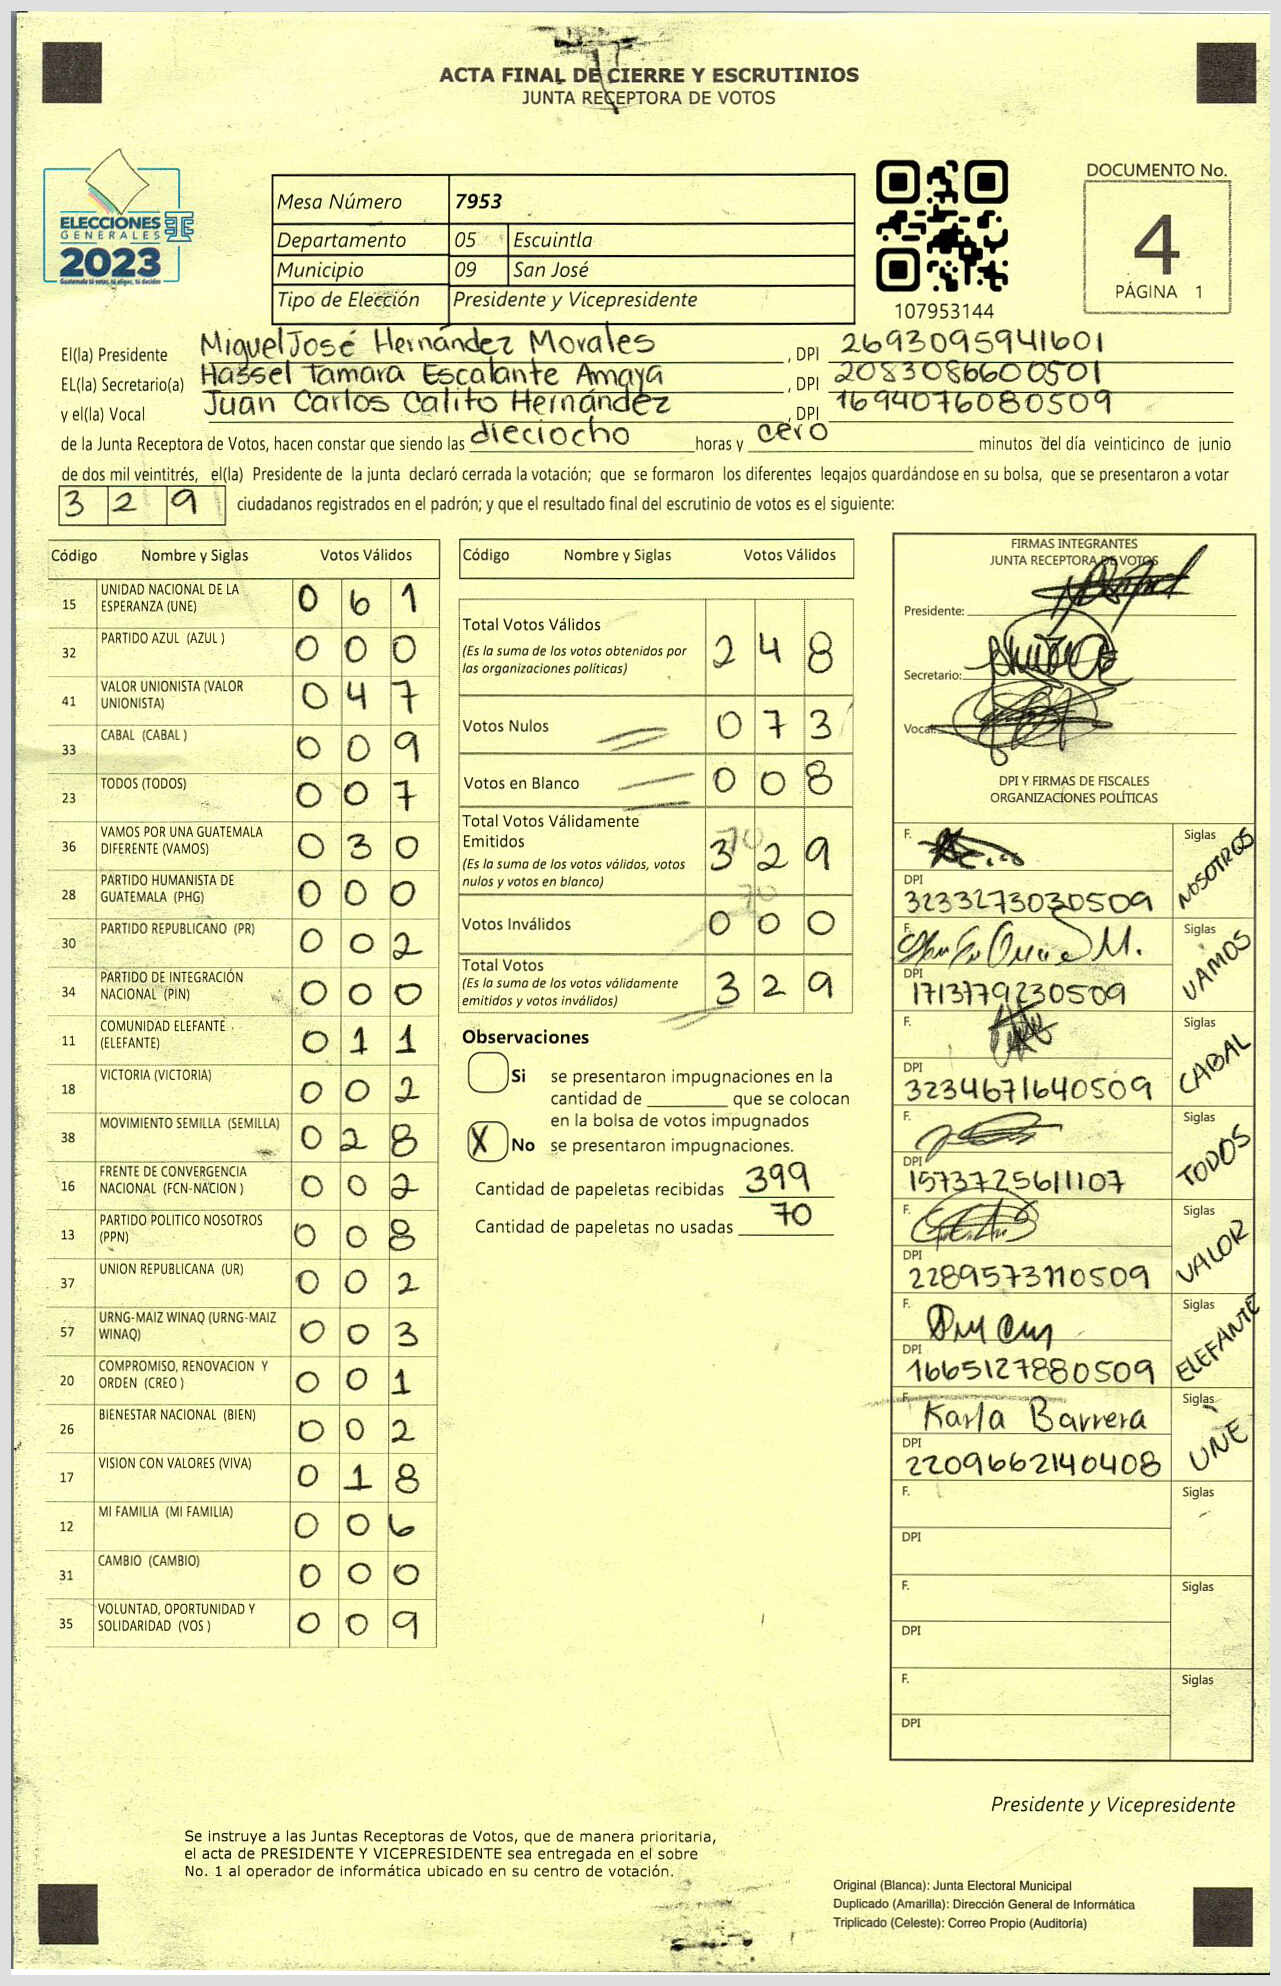 ACTA FINAL DE CIERRE Y ESCRUTINIOS
JUNTA RECEPTORA DE VOTOS
ELECCIONES
GENERALES
2023
Guatemala tú votas, tú eliges, tú decides
Mesa Número 7953
Departamento 05 Escuintla
Municipio 09 San José
Tipo de Elección Presidente y Vicepresidente
107953144
DOCUMENTO No.
4
PÁGINA 1
El(la) Presidente Miguel José Hernández Morales , DPI 2693095941601
EL(la) Secretario(a) Hassel Tamara Escalante Amaya , DPI 2083086600501
y el(la) Vocal Juan Carlos Calito Hernández , DPI 1694076080509
de la Junta Receptora de Votos, hacen constar que siendo las dieciocho horas y cero minutos del día veinticinco de junio
de dos mil veintitrés, el(la) Presidente de la junta declaró cerrada la votación; que se formaron los diferentes legajos guardándose en su bolsa, que se presentaron a votar
3 2 9 ciudadanos registrados en el padrón; y que el resultado final del escrutinio de votos es el siguiente:
Código Nombre y Siglas Votos Válidos
15 UNIDAD NACIONAL DE LA
ESPERANZA (UNE) 0 6 1
32 PARTIDO AZUL (AZUL ) 0 0 0
41 VALOR UNIONISTA (VALOR
UNIONISTA) 0 4 7
33 CABAL (CABAL ) 0 0 9
23 TODOS (TODOS) 0 0 7
36 VAMOS POR UNA GUATEMALA
DIFERENTE (VAMOS) 0 3 0
28 PARTIDO HUMANISTA DE
GUATEMALA (PHG) 0 0 0
30 PARTIDO REPUBLICANO (PR) 0 0 2
34 PARTIDO DE INTEGRACIÓN
NACIONAL (PIN) 0 0 0
11 COMUNIDAD ELEFANTE
(ELEFANTE) 0 1 1
18 VICTORIA (VICTORIA) 0 0 2
38 MOVIMIENTO SEMILLA (SEMILLA) 0 2 8
16 FRENTE DE CONVERGENCIA
NACIONAL (FCN-NACION ) 0 0 2
13 PARTIDO POLITICO NOSOTROS
(PPN) 0 0 8
37 UNION REPUBLICANA (UR) 0 0 2
57 URNG-MAIZ WINAQ (URNG-MAIZ
WINAQ) 0 0 3
20 COMPROMISO, RENOVACION Y
ORDEN (CREO ) 0 0 1
26 BIENESTAR NACIONAL (BIEN) 0 0 2
17 VISION CON VALORES (VIVA) 0 1 8
12 MI FAMILIA (MI FAMILIA) 0 0 6
31 CAMBIO (CAMBIO) 0 0 0
35 VOLUNTAD, OPORTUNIDAD Y
SOLIDARIDAD (VOS ) 0 0 9
Código Nombre y Siglas Votos Válidos
Total Votos Válidos
(Es la suma de los votos obtenidos por
las organizaciones políticas) 2 4 8
Votos Nulos 0 7 3
Votos en Blanco 0 0 8
Total Votos Válidamente
Emitidos 70
(Es la suma de los votos válidos, votos
nulos y votos en blanco) 3 2 9
70
Votos Inválidos 0 0 0
Total Votos
(Es la suma de los votos válidamente
emitidos y votos inválidos) 3 2 9
Observaciones
Si se presentaron impugnaciones en la
cantidad de ________ que se colocan
en la bolsa de votos impugnados
X No se presentaron impugnaciones.
Cantidad de papeletas recibidas 399
Cantidad de papeletas no usadas 70
FIRMAS INTEGRANTES
JUNTA RECEPTORA DE VOTOS
Presidente:
Secretario:
Vocal:
DPI Y FIRMAS DE FISCALES
ORGANIZACIONES POLÍTICAS
F. Siglas NOSOTROS
DPI
3233273030509
F. Siglas VAMOS
DPI
1713779230509
F. Siglas CABAL
DPI
3234671640509
F. Siglas TODOS
DPI
1573725611107
F. Siglas VALOR
DPI
2289573110509
F. Siglas ELEFANTE
DPI
1665127880509
F. Karla Barrera Siglas UNE
DPI
2209662140408
F. Siglas
DPI
F. Siglas
DPI
F. Siglas
DPI
Presidente y Vicepresidente
Se instruye a las Juntas Receptoras de Votos, que de manera prioritaria,
el acta de PRESIDENTE Y VICEPRESIDENTE sea entregada en el sobre
No. 1 al operador de informática ubicado en su centro de votación.
Original (Blanca): Junta Electoral Municipal
Duplicado (Amarilla): Dirección General de Informática
Triplicado (Celeste): Correo Propio (Auditoría)